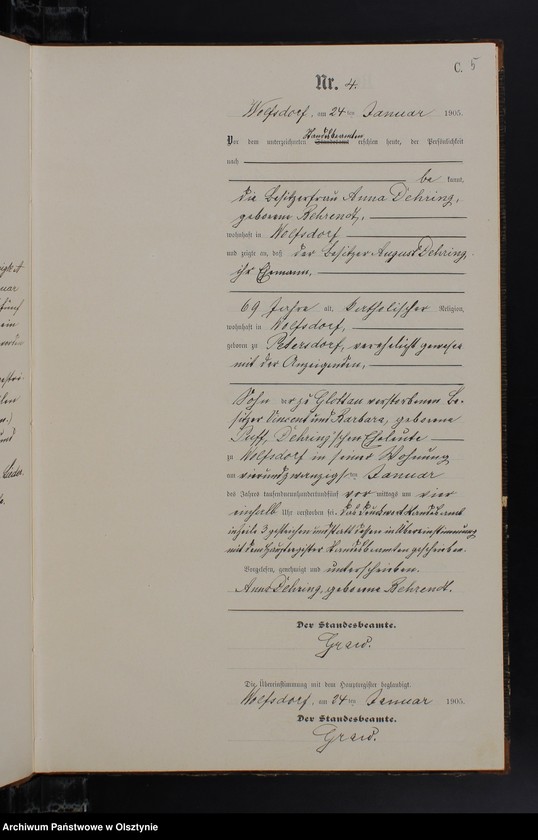 C. 5
Nr. 4.
Wolfsdorf, am 24 ten Januar 1905.
Standesbeamten
Vor dem unterzeichneten Standesamt erschien heute, der Persönlichkeit
nach
be kannt,
die Besitzerfrau Anna Dehring,
geborene Behrendt,
wohnhaft in Wolfsdorf
und zeigte an, daß der Besitzer August Dehring,
ihr Ehemann,
69 Jahre alt, katholischer Religion,
wohnhaft in Wolfsdorf,
geboren zu Petersdorf, verehelicht gewesen
mit der Anzeigenden,
Sohn der zu Glottau verstorbenen Be-
sitzer Vincent und Barbara, geborene
Dehring'schen Eheleute
zu Wolfsdorf in seiner Wohnung
am vierundzwanzigsten Januar
des Jahres tausendneunhundertundfünf vor mittags um vier
einhalb Uhr verstorben sei. Das Druckwort Standesamt
in Zeile 3 gestrichen und statt dessen in Übereinstimmung
mit dem Hauptregister Standesbeamten geschrieben.
Vorgelesen, genehmigt und unterschrieben.
Anna Dehring, geborene Behrendt.
Der Standesbeamte.
Graw.
Die Übereinstimmung mit dem Hauptregister beglaubigt.
Wolfsdorf, am 24 ten Januar 1905.
Der Standesbeamte.
Graw.
Archiwum Państwowe w Olsztynie